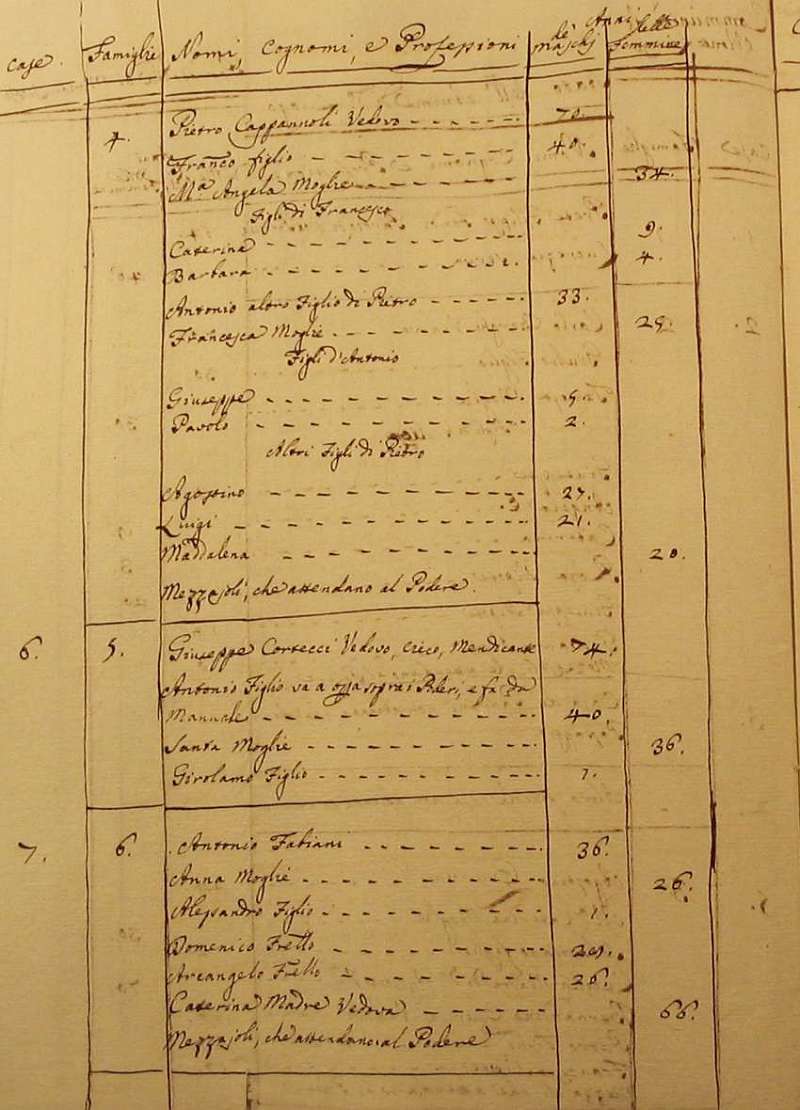 Case. Famiglie Nomi, Cognomi, e Professioni Anni
de' Maschj delle Femmine
4. Pietro Cappannoli Vedovo 70.
Franco figlio 40.
Mª Angela Moglie 34.
Figli di Francesco
Caterina 9.
Barbara 4.
Antonio altro Figlio di Pietro 33.
Francesca Moglie 29.
Figli d'Antonio
Giuseppe 5.
Pavolo 2.
Altri Figli di Pietro
Agostino 27.
Luigi 21.
Maddalena 20.
Mezzajoli, che attendano al Podere.
6. 5. Giuseppe Cortecci Vedovo, cieco, Mendicante 74.
Antonio Figlio va a opra sopra i Poderi, e fa da
Manuale 40.
Santa Moglie 36.
Girolamo Figlio 1.
7. 6. Antonio Fabiani 36.
Anna Moglie 26.
Alessandro Figlio 1.
Domenico Frello 29.
Arcangelo Frello 26.
Caterina Madre Vedova 66.
Mezzajoli, che attendano al Podere